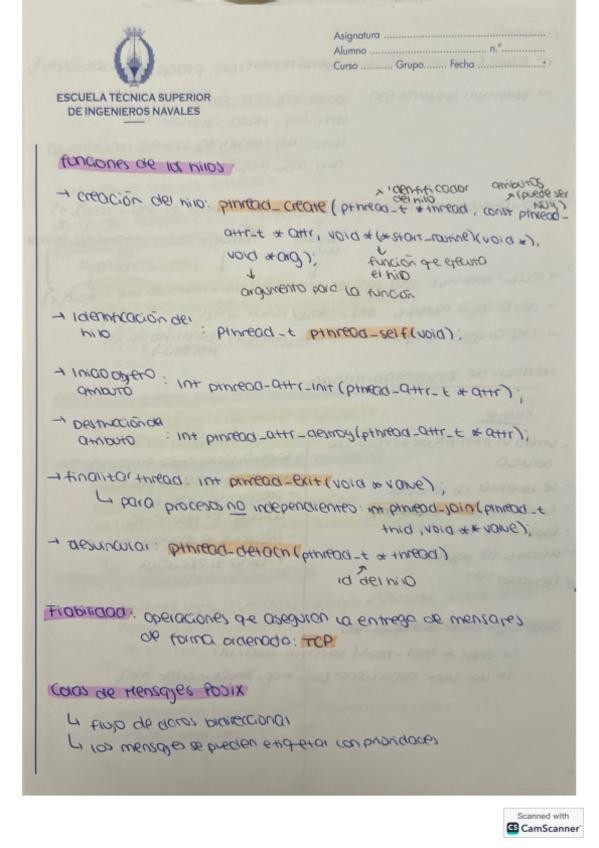 Asignatura
Alumno n.º
Curso Grupo Fecha
ESCUELA TÉCNICA SUPERIOR
DE INGENIEROS NAVALES
Funciones de los hilos
→ creación del hilo: pthread_create (pthread_t *thread, const pthread_
identificador del hilo
atributos (puede ser NULL)
attr_t * attr, void *(*start_routine)(void *),
void *arg);
función qe ejecuta
el hilo
argumento para la función
→ Identificación del
hilo : pthread_t pthread_self(void);
→ Inicio objeto
atributo : int pthread_attr_init (pthread_attr_t * attr);
→ Destrucción de
atributo : int pthread_attr_destroy(pthread_attr_t * attr);
→ finalizar thread: int pthread_exit (void * value);
↳ para procesos no independientes: int pthread_join(pthread_t
thid, void ** value);
→ desvincular: pthread_detach (pthread_t * thread)
id del hilo
Fiabilidad: operaciones qe aseguran la entrega de mensajes
de forma ordenada: TCP
Colas de Mensajes POSIX
↳ flujo de datos bidireccional
↳ los mensajes se pueden etiquetar con prioridades
Scanned with
CS CamScanner